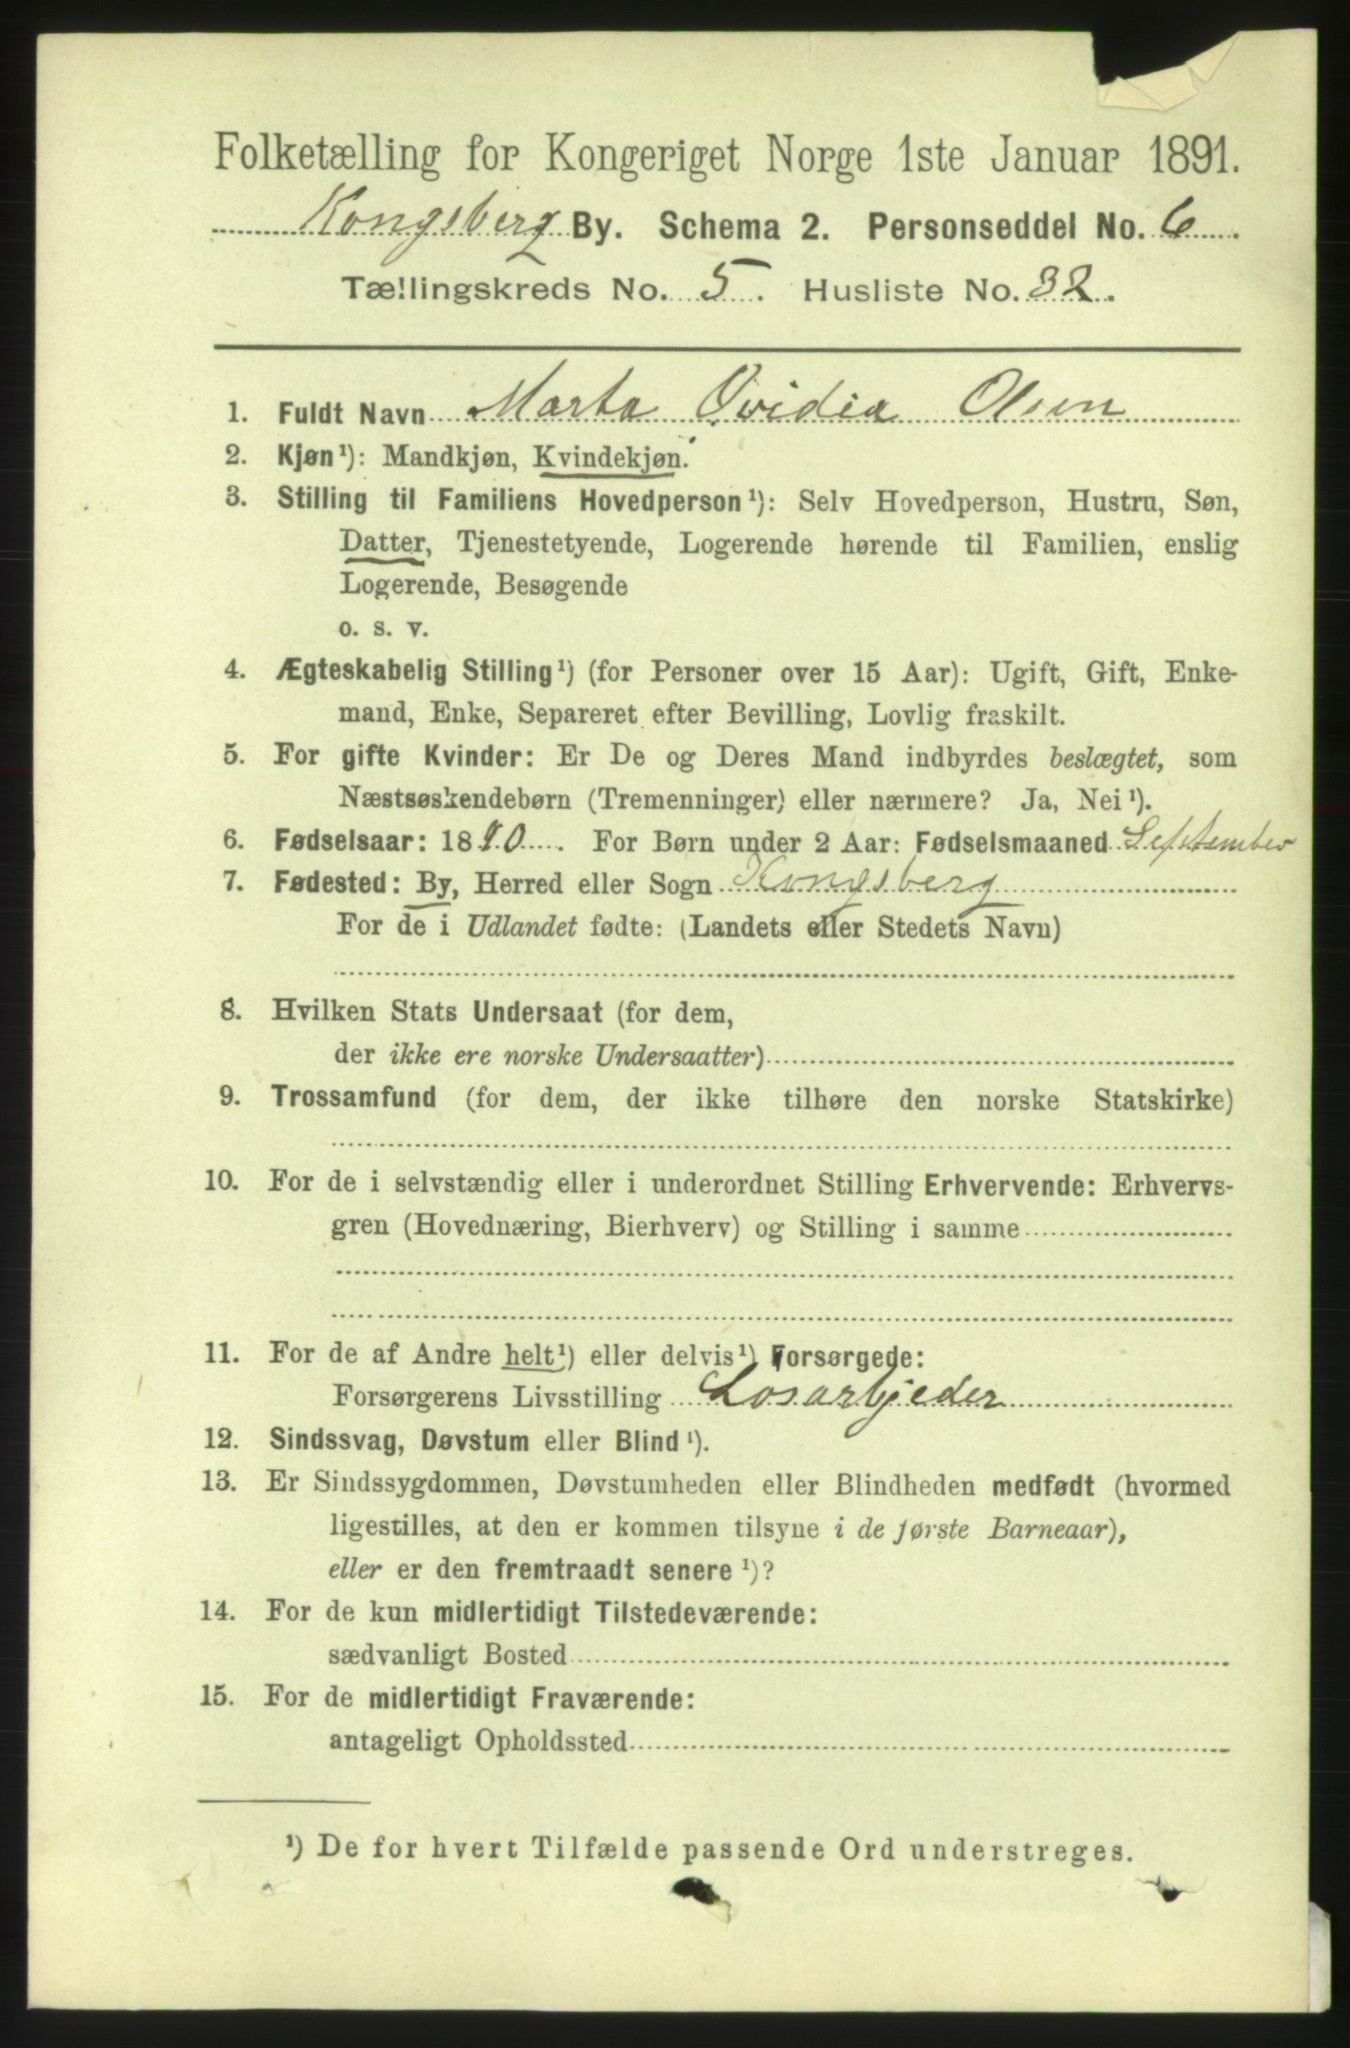 Folketælling for Kongeriget Norge 1ste Januar 1891.
Kongsberg By. Schema 2. Personseddel No. 6.
Tællingskreds No. 5. Husliste No. 32.
1. Fuldt Navn Marta Ovidia Olsen
2. Kjøn¹): Mandkjøn, Kvindekjøn.
3. Stilling til Familiens Hovedperson¹): Selv Hovedperson, Hustru, Søn,
Datter, Tjenestetyende, Logerende hørende til Familien, enslig
Logerende, Besøgende
o. s. v.
4. Ægteskabelig Stilling¹) (for Personer over 15 Aar): Ugift, Gift, Enke-
mand, Enke, Separeret efter Bevilling, Lovlig fraskilt.
5. For gifte Kvinder: Er De og Deres Mand indbyrdes beslægtet, som
Næstsøskendebørn (Tremenninger) eller nærmere? Ja, Nei¹).
6. Fødselsaar: 1890. For Børn under 2 Aar: Fødselsmaaned September
7. Fødested: By, Herred eller Sogn Kongsberg
For de i Udlandet fødte: (Landets eller Stedets Navn)
8. Hvilken Stats Undersaat (for dem,
der ikke ere norske Undersaatter)
9. Trossamfund (for dem, der ikke tilhøre den norske Statskirke)
10. For de i selvstændig eller i underordnet Stilling Erhvervende: Erhvervs-
gren (Hovednæring, Bierhverv) og Stilling i samme
11. For de af Andre helt¹) eller delvis¹) Forsørgede:
Forsørgerens Livsstilling Løsarbjeder
12. Sindssvag, Døvstum eller Blind¹).
13. Er Sindssygdommen, Døvstumheden eller Blindheden medfødt (hvormed
ligestilles, at den er kommen tilsyne i de første Barneaar),
eller er den fremtraadt senere¹)?
14. For de kun midlertidigt Tilstedeværende:
sædvanligt Bosted
15. For de midlertidigt Fraværende:
antageligt Opholdssted
¹) De for hvert Tilfælde passende Ord understreges.